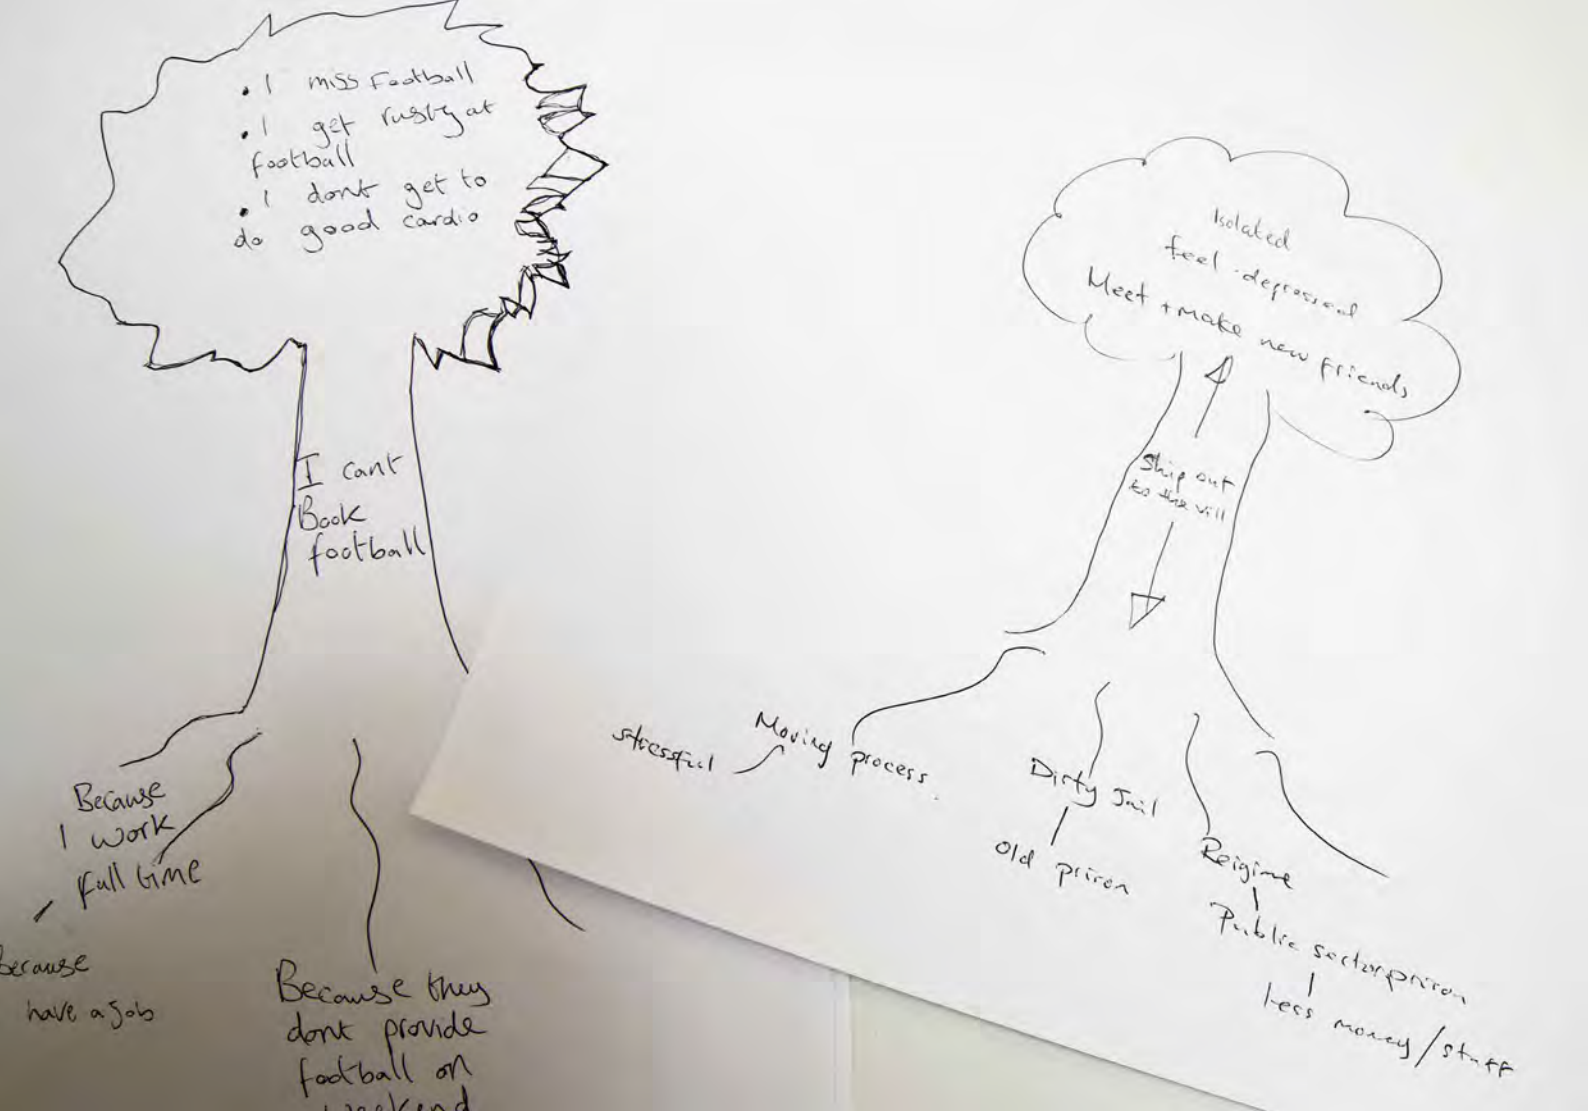 . I miss Football
. I get rusty at
football
. I dont get to
do good cardio
I cant
Book
football
Because
I work
full time
Because
have a job
Because they
dont provide
football on
weekend
Isolated
feel depressed
Meet + make new friends
Ship out
to the vill
stressful
Moving process.
Dirty Jail
Old prison
Reigime
Public sector prison
less money/staff